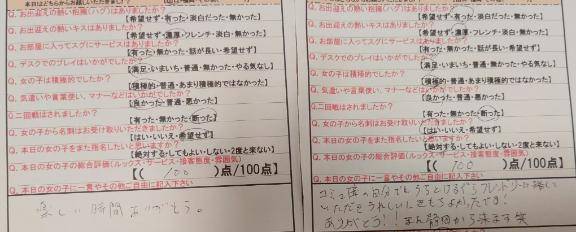 本日はどちらからお越しいただきましたか?
Q. お出迎えの熱い抱擁(ハグ)はありましたか?
【希望せず・有った・淡白だった・無かった】
Q. お出迎えの熱いキスはありましたか?
【希望せず・濃厚・フレンチ・淡白・無かった】
Q. お部屋に入ってスグにサービスはありましたか?
【有った・無かった・話が長い・希望せず】
Q. デスクでのプレイはいかがでしたか?
【満足・いまいち・普通・無かった・やる気なし】
Q. 女の子は積極的でしたか?
【積極的・普通・あまり積極的ではなかった】
Q. 気遣いや言葉使い、マナーなどはいかがでしたか?
【良かった・普通・悪かった】
Q. 二回戦はされましたか?
【有った・無かった・断った】
Q. 女の子から名刺はお受け取りいただきましたか?
【はい・いいえ・希望せず】
Q. 本日の女の子をまた指名したいと思いますか?
【絶対する・してもよい・しない・2度と来ない】
Q. 本日の女の子の総合評価(ルックス・サービス・接客態度・雰囲気)
【( 100 )点/100点】
Q. 本日の女の子に一言やその他ご自由に記入下さい
楽しい時間ありがとう。
Q. お出迎えの熱い抱擁(ハグ)はありましたか?
【希望せず・有った・淡白だった・無かった】
Q. お出迎えの熱いキスはありましたか?
【希望せず・濃厚・フレンチ・淡白・無かった】
Q. お部屋に入ってスグにサービスはありましたか?
【有った・無かった・話が長い・希望せず】
Q. デスクでのプレイはいかがでしたか?
【満足・いまいち・普通・無かった・やる気なし】
Q. 女の子は積極的でしたか?
【積極的・普通・あまり積極的ではなかった】
Q. 気遣いや言葉使い、マナーなどはいかがでしたか?
【良かった・普通・悪かった】
Q. 二回戦はされましたか?
【有った・無かった・断った】
Q. 女の子から名刺はお受け取りいただきましたか?
【はい・いいえ・希望せず】
Q. 本日の女の子をまた指名したいと思いますか?
【絶対する・してもよい・しない・2度と来ない】
Q. 本日の女の子の総合評価(ルックス・サービス・接客態度・雰囲気)
【( 100 )点/100点】
Q. 本日の女の子に一言やその他ご自由に記入下さい
コミュ障の自分でも フレンドリーに接して
いただきうれしいしきもちよかったです!
ありがとう!! また静岡から来ます 笑